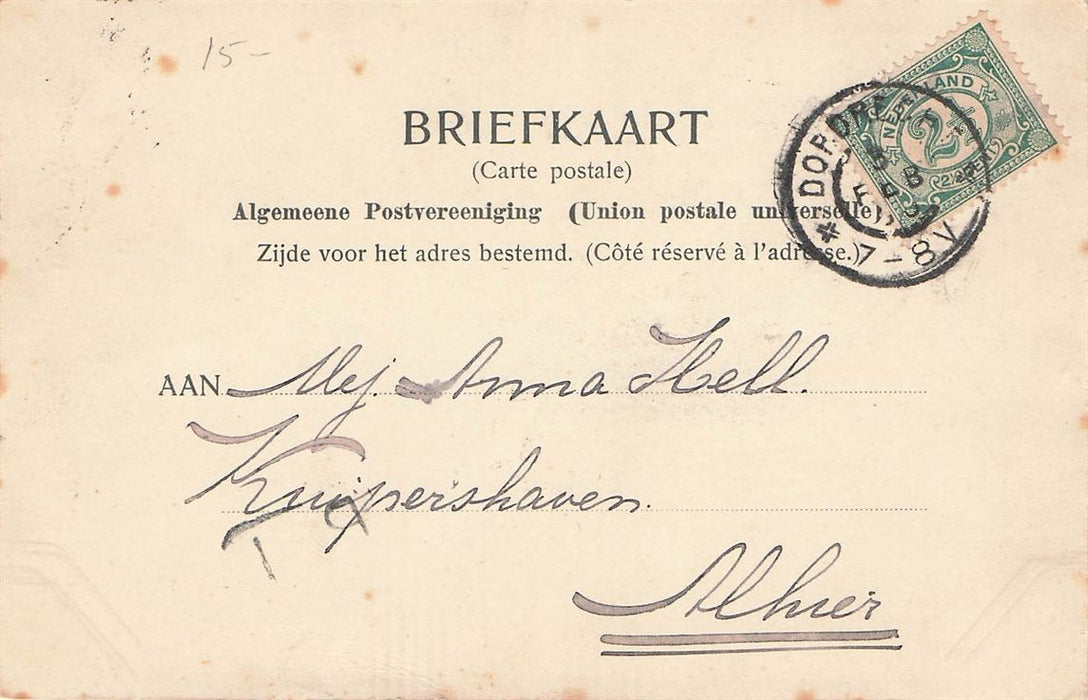 15-
BRIEFKAART
(Carte postale)
Algemeene Postvereeniging (Union postale universelle)
Zijde voor het adres bestemd. (Côté réservé à l'adresse.)
NEDERLAND
2½
DORDRECHT
7-8V
AAN Mej. Anna Hell.
Kuipershaven.
Alhier